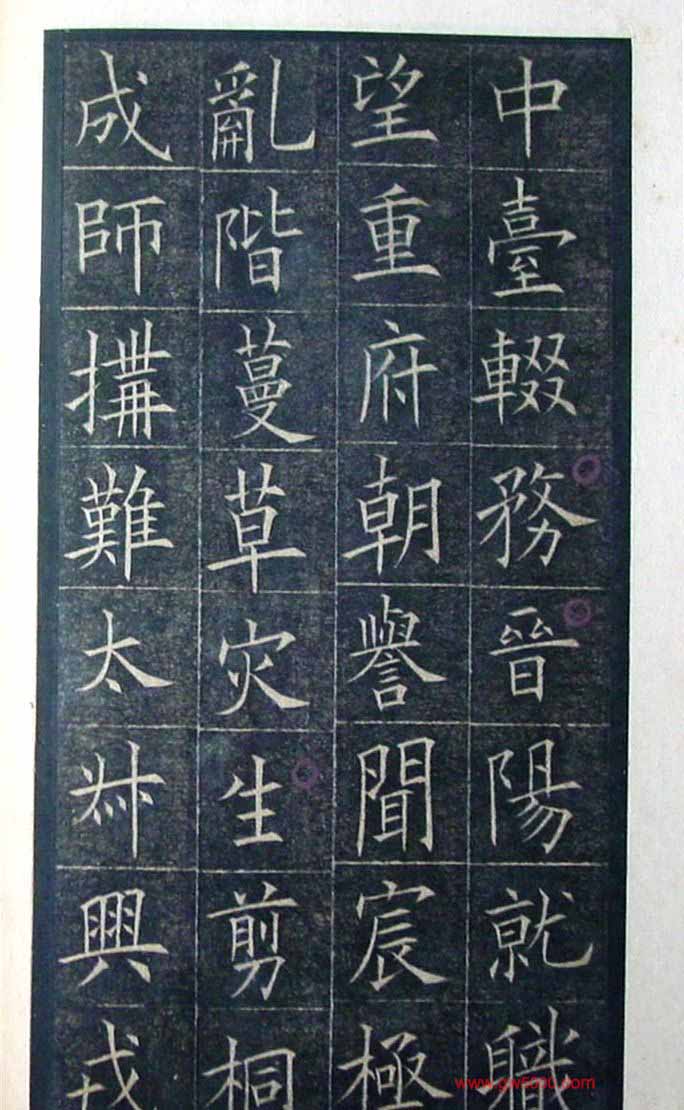 中臺輟務晉陽就職
望重府朝譽聞宸極
亂階蔓草灾生剪桐
成師搆難太叔興戎